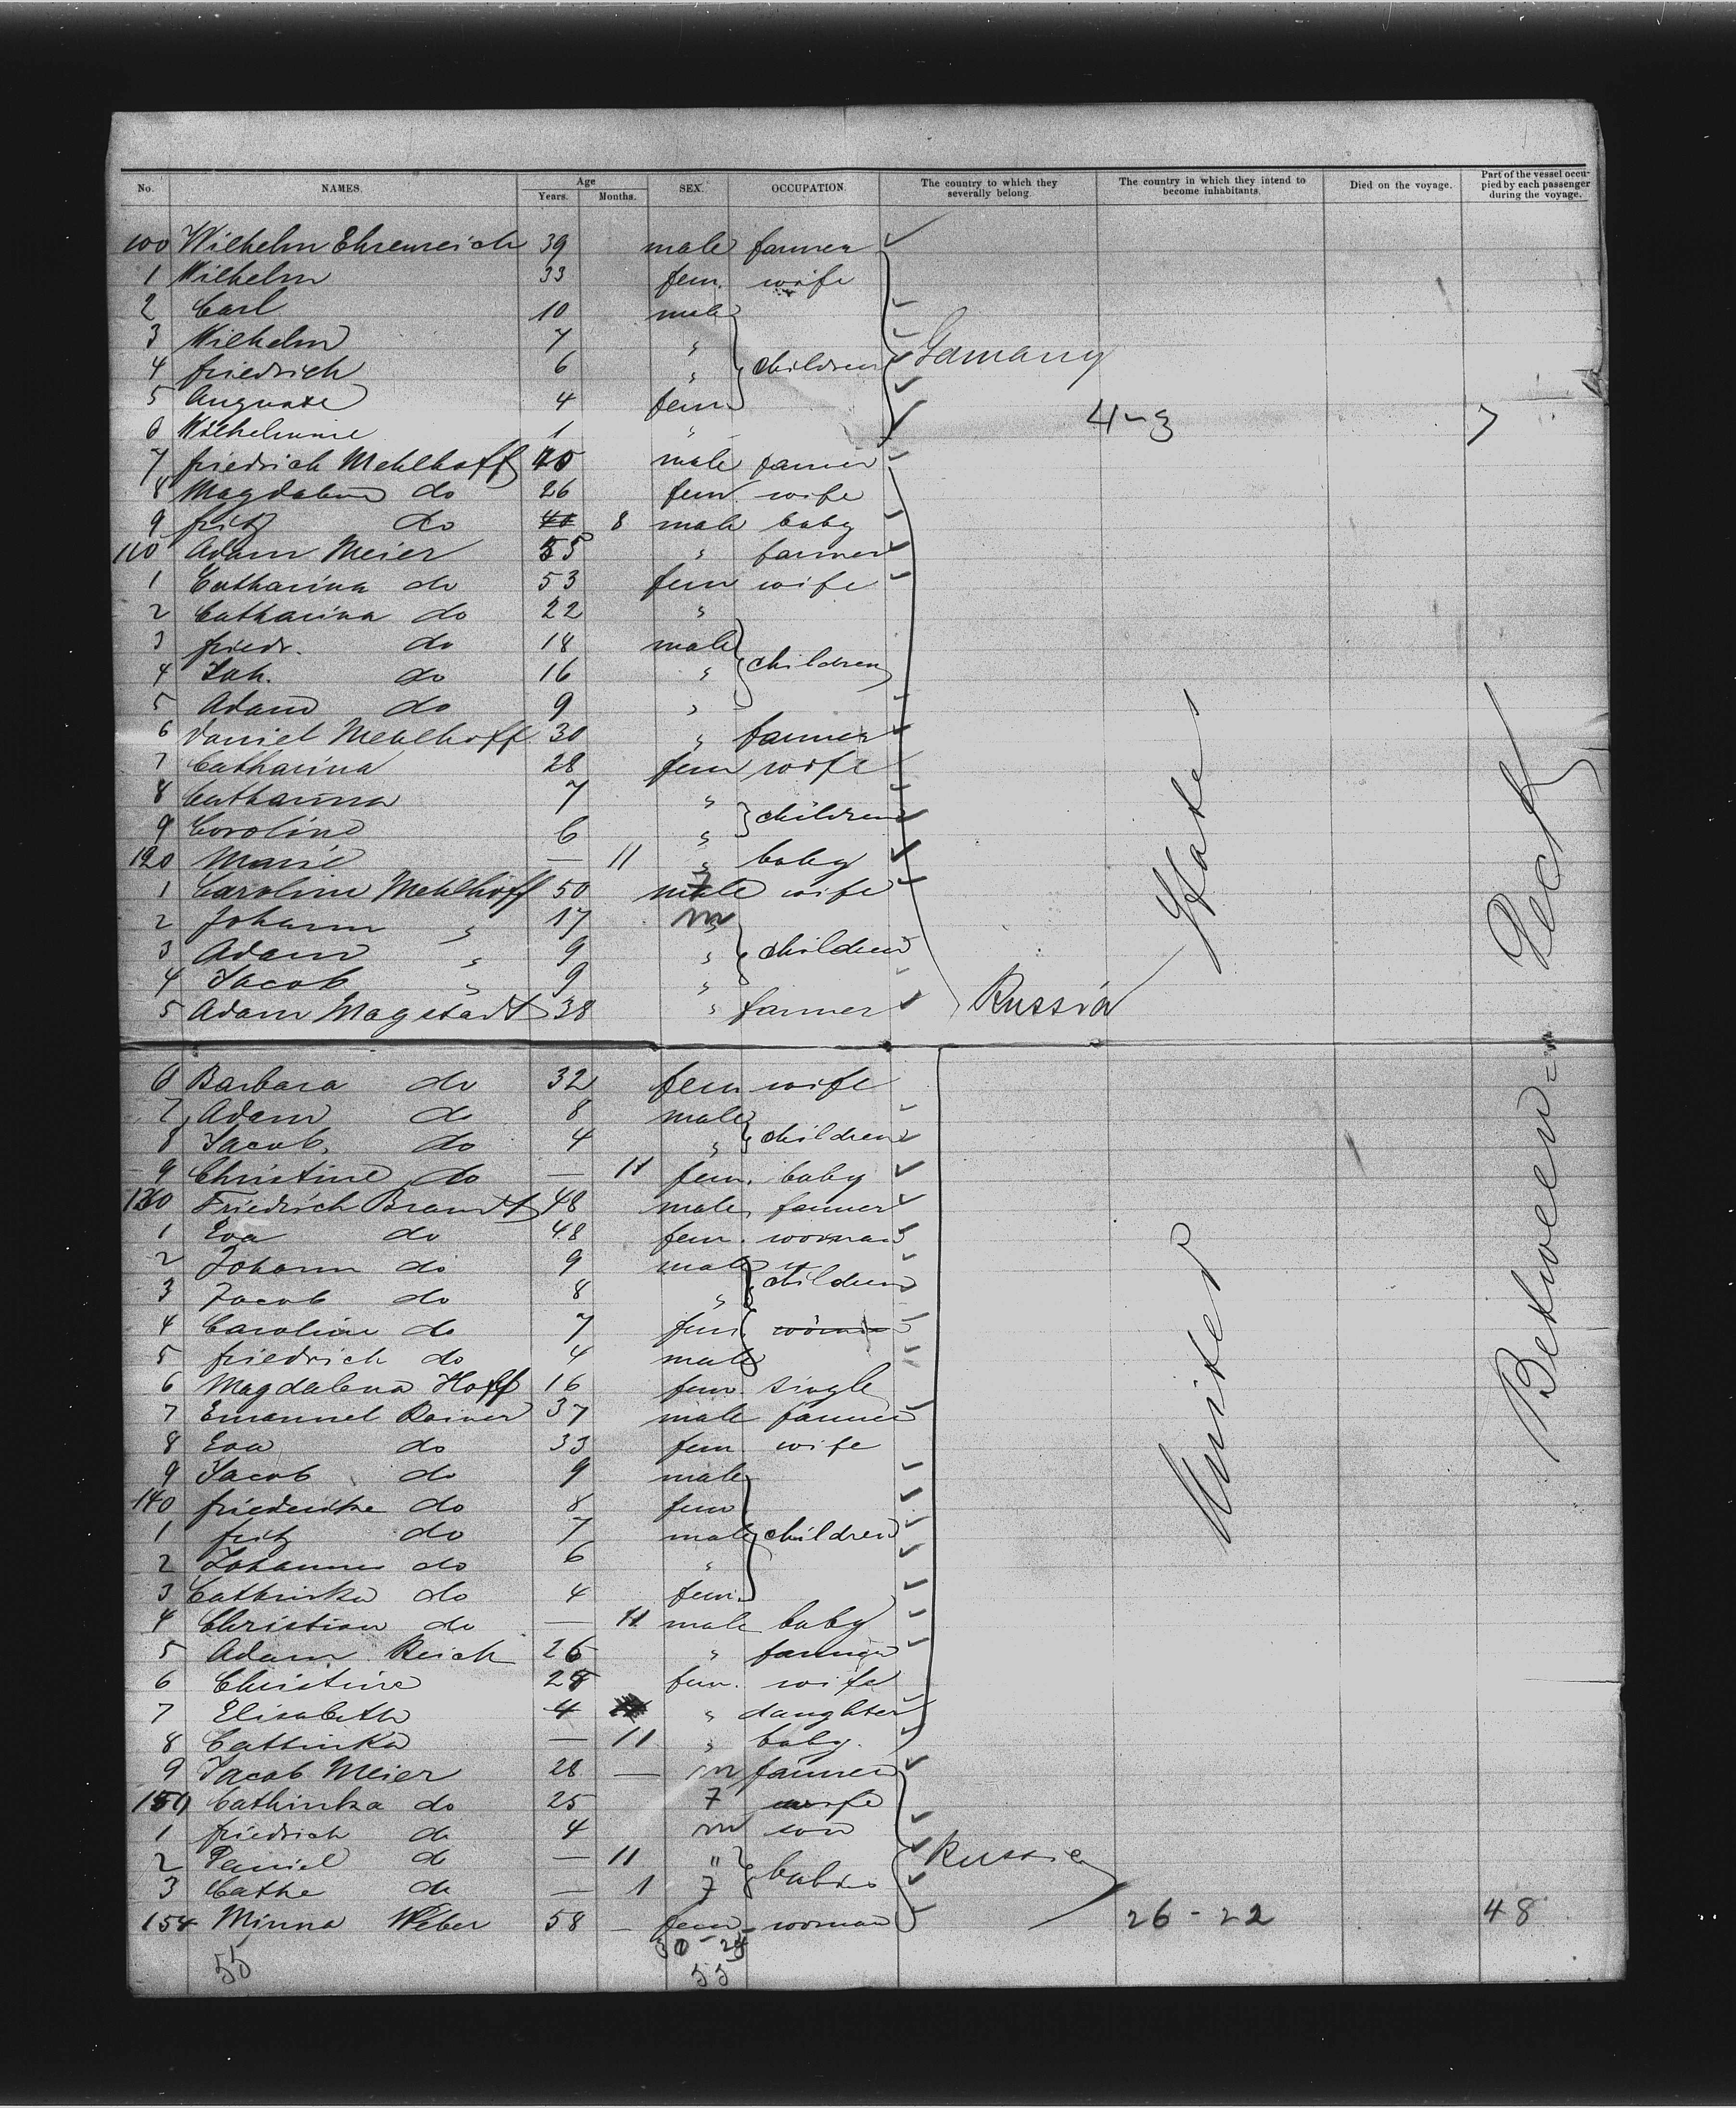 No. NAMES. Age Years. Months. SEX. OCCUPATION. The country to which they severally belong. The country in which they intend to become inhabitants. Died on the voyage. Part of the vessel occupied by each passenger during the voyage.
100 Wilhelm Ehrenreich 39 male farmer
1 Wilhelm 33 fem. wife
2 Carl 10 male
3 Wilhelm 7 "
4 friedrich 6 " children Germany
5 Auguste 4 fem
6 Wilhelmine 1 " 4-3 7
7 friedrich Mehlhaff 45 male farmer
8 Magdalena do 26 fem. wife
9 fritz do 8 male baby
110 Adam Meier 55 " farmer
1 Catharina do 53 fem wife
2 Catharina do 22 "
3 friedr. do 18 male
4 Joh. do 16 " children
5 Adam do 9 "
6 Daniel Mehlhaff 30 " farmer
7 Catharina 28 fem wife
8 Catharina 7 "
9 Caroline 6 " children
120 Marie — 11 " baby
1 Caroline Mehlhaff 50 male wife
2 Johann " 17 m
3 Adam " 9 " children
4 Jacob " 9 "
5 Adam Magstadt 38 " farmer Russia
6 Barbara do 32 fem wife
7 Adam do 8 male
8 Jacob do 4 " children
9 Christine do — 11 fem. baby
130 Friedrich Brandt 48 male farmer
1 Eva do 48 fem. woman
2 Johann do 9 male
3 Jacob do 8 " children
4 Caroline do 7 fem.
5 friedrich do 4 male
6 Magdalena Hoff 16 fem. single
7 Emanuel Rainer 37 male farmer
8 Eva do 33 fem wife
9 Jacob do 9 male
140 friedericke do 8 fem
1 fritz do 7 male children
2 Johannes do 6 "
3 Cathinka do 4 fem.
4 Christian do — 11 male baby
5 Adam Reich 26 " farmer
6 Christine 25 fem. wife
7 Elisabeth 4 " daughter
8 Cathinka — 11 " baby.
9 Jacob Meier 28 — m farmer
150 Cathinka do 25 f wife
1 friedrich do 4 m son
2 Daniel do — 11 " babies Russia
3 Cathe do — 1 f
154 Minna Weber 58 — fem woman 26 - 22 48
30 - 24
55 55
United States
Between Deck